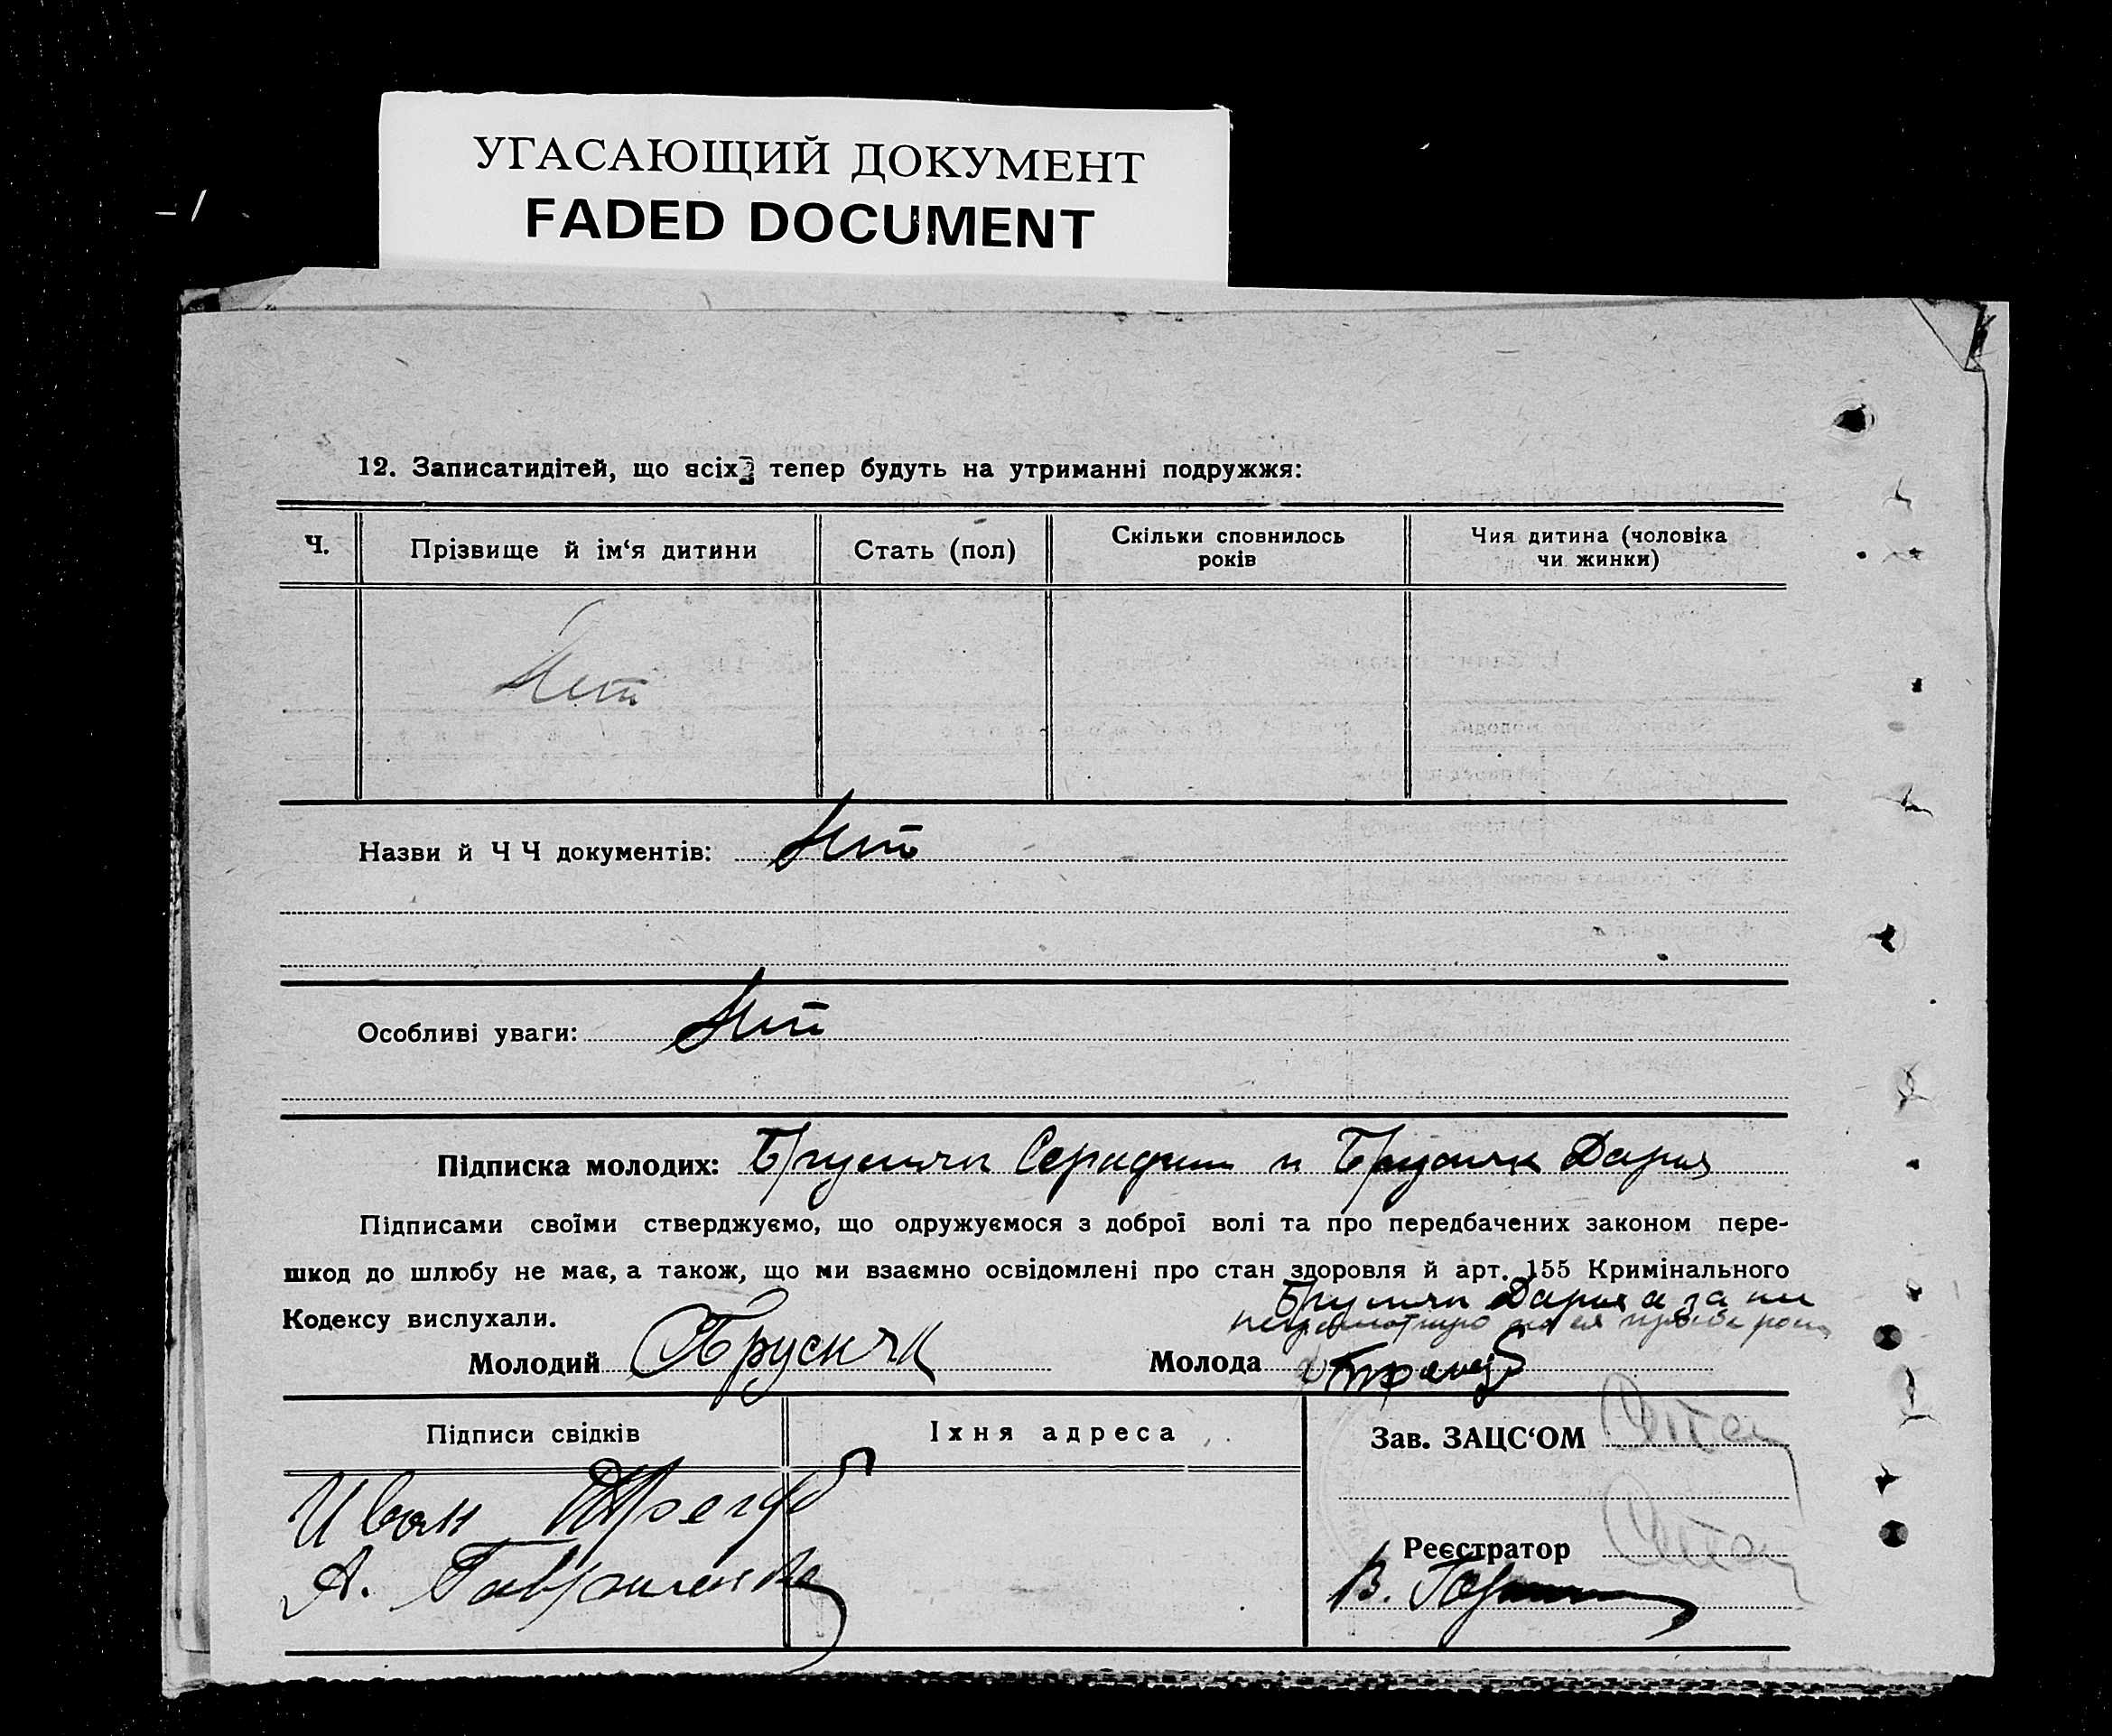 УГАСАЮЩИЙ ДОКУМЕНТ
FADED DOCUMENT
12. Записатидітей, що всіх тепер будуть на утриманні подружжя:
Ч.
Прізвище й ім‘я дитини
Стать (пол)
Скільки сповнилось
років
Чия дитина (чоловіка
чи жинки)
Нет
Назви й Ч Ч документів: Нет
Особливі уваги: Нет
Підписка молодих: Брусняк Серафим и Брусняк Дария
Підписами своїми стверджуємо, що одружуємося з доброї волі та про передбачених законом пере-
шкод до шлюбу не має, а також, що ми взаємно освідомлені про стан здоровля й арт. 155 Кримінального
Кодексу вислухали.
Брусняк Дария а за
Молодий Брусняк
Молода
Підписи свідків
Їхня адреса
Зав. ЗАЦС‘ОМ
Иван
А. Гавриленко
Реєстратор
В.